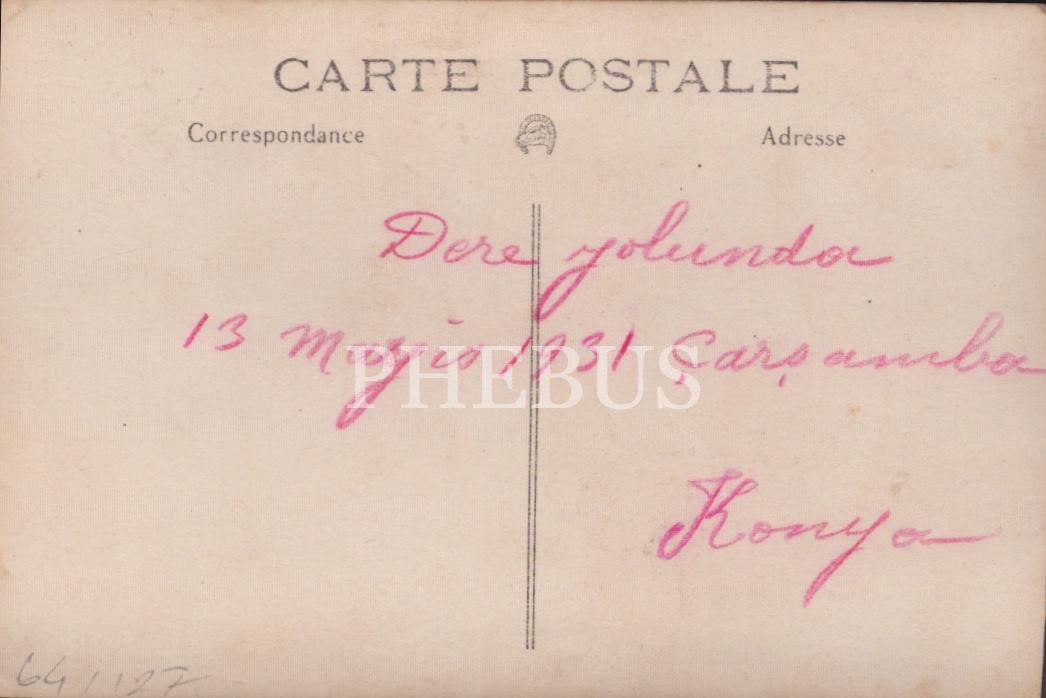 CARTE POSTALE
Correspondance Adresse
Dere yolunda
13 Mayis 1931 Çarşamba
PHEBUS
Konya
64/127